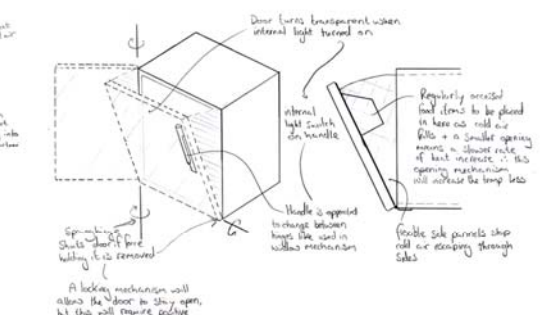 Door turns transparent when
internal light turned on
internal
light switch
on handle
Regularly accessed
food items to be placed
in here as cold air
falls + a smaller opening
means a slower rate
of heat increase ∴ this
opening mechanism
will increase the temp loss
Handle is operated
to change between
hinges like used in
window mechanism
flexible side pannels stop
cold air escaping through
sides
Spring
shuts door if force
holding it is removed
A locking mechanism will
allow the door to stay open,
but this will require positive
air
into